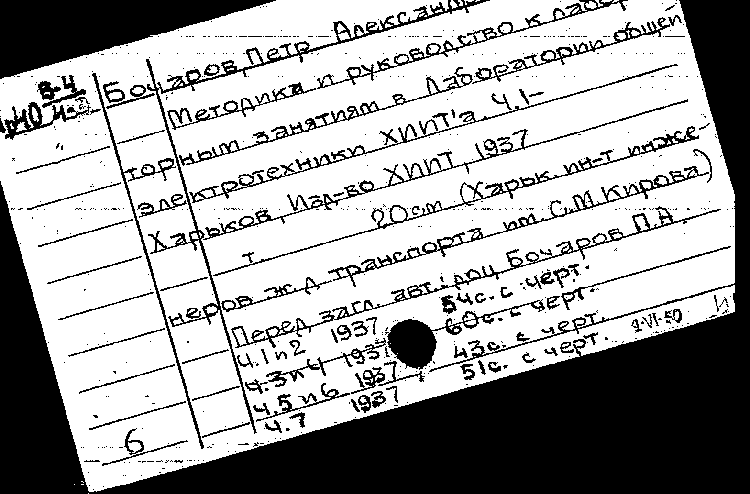 В-4
Бочаров, Петр Александр
Методика и руководство к лабор
торным занятиям в Лаборатории общей
электротехники ХИИТ'а. Ч.1-
Харьков, Изд-во ХИИТ, 1937
т. 20 cm (Харьк. ин-т инже-
неров ж.д. транспорта им. С.М. Кирова)
Перед загл. авт.: доц Бочаров П.А.
Ч.1 и 2 1937 54с. с черт.
Ч.3 и 4 1937 60с. с черт.
Ч.5 и 6 1937 43с. с черт.
Ч.7 1937 51с. с черт. 9-VI-50
6